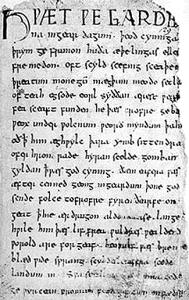 HǷÆT ǷE GARDE
na ingear dagum. þeod cyninga
þrym ge frunon huða æþelingas elle
fremedon. oft scyld scefing sceaþe
þreatum monegū mægþum meodo setla
of teah egsode eorl syððan ærest ƿear
fea sceaft funden he þæs frofre geba
ƿeox under ƿolcnum ƿeorð myndum þah
oð ꝥ him æghƿylc þara ymb sittendra
ofer hron rade hyran scolde gomban
gyldan ꝥ ƿæs god cyning. ðæm eafera ƿæs
æfter cenned geong in geardum þone god
sende folce tofrofre fyren ðearfe on
geat ꝥ hie ær drugon aldor ase. lange
hƿile him þæs lif frea ƿuldres ƿealdend
ƿorold are for geaf. beoƿulf ƿæs breme
blæd ƿide sprang scyldes eafera scede
landum in. Sƿa sceal
ge ƿyrcean fromum feoh giftum